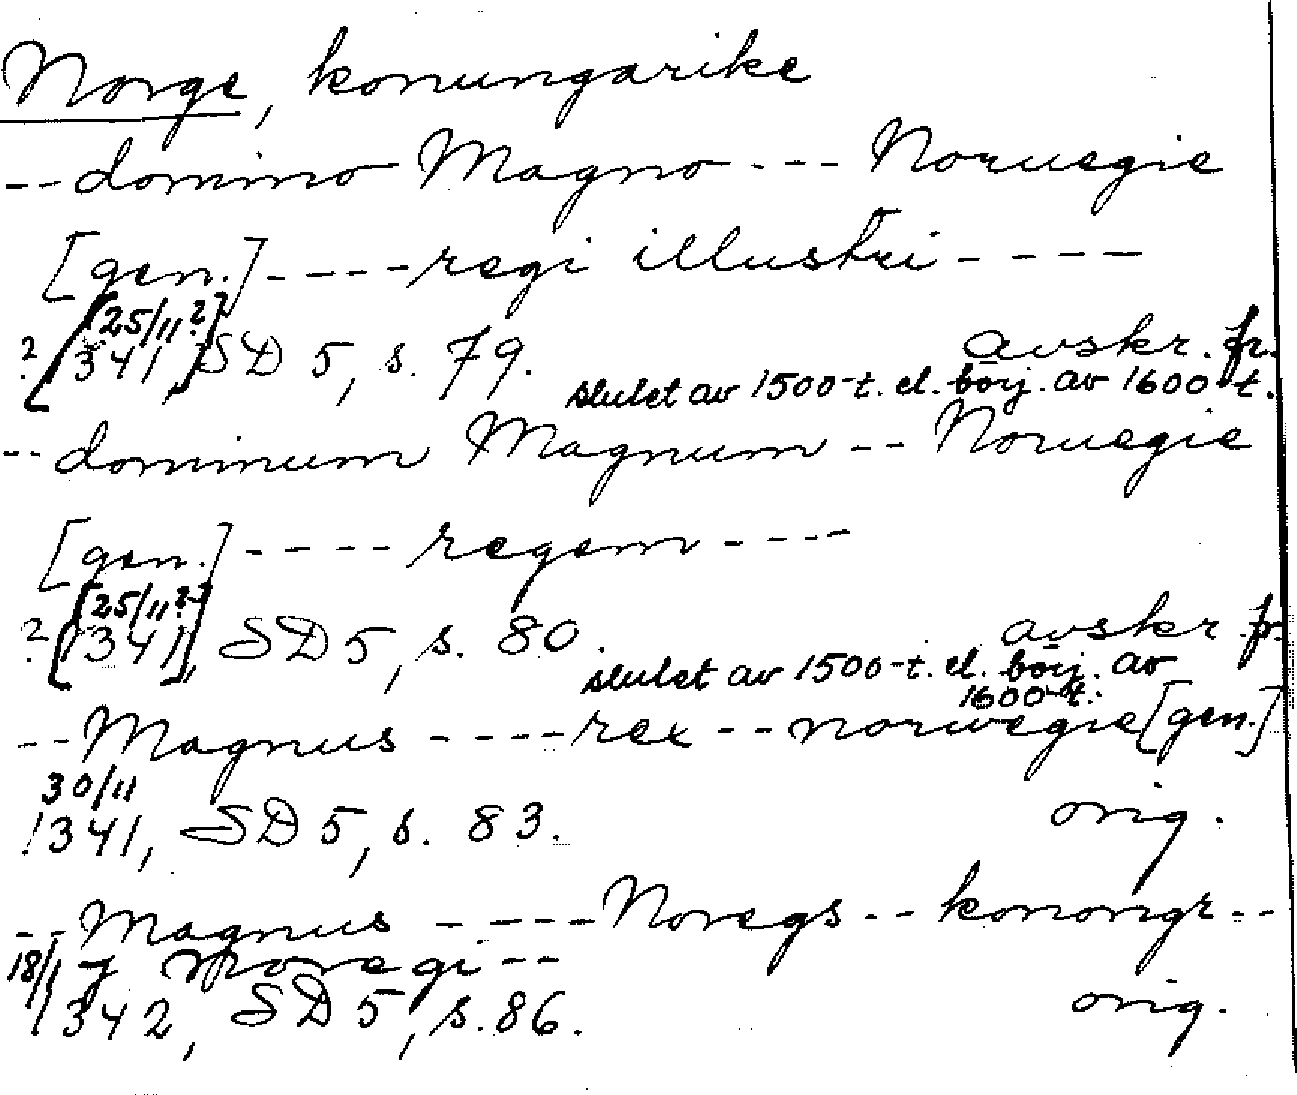 Norge, konungarike
--domino Magno---- Noruegie
[gen.]----regi illustri----
[25/11?]
?[1341,] SD 5, s. 79. avskr. fr.
slutet av 1500-t. el. börj. av 1600-t.
--dominum Magnum-- Noruegie
[gen.]----regem----
[25/11?]
?[1341], SD 5, s. 80. avskr. fr.
slutet av 1500-t. el. börj. av
1600-t.
--Magnus----rex--norwegie[gen.]
30/11
1341, SD 5, s. 83. orig.
--Magnus----Noregs--konongr--
18/1 j Noregi--
1342, SD 5, s. 86. orig.